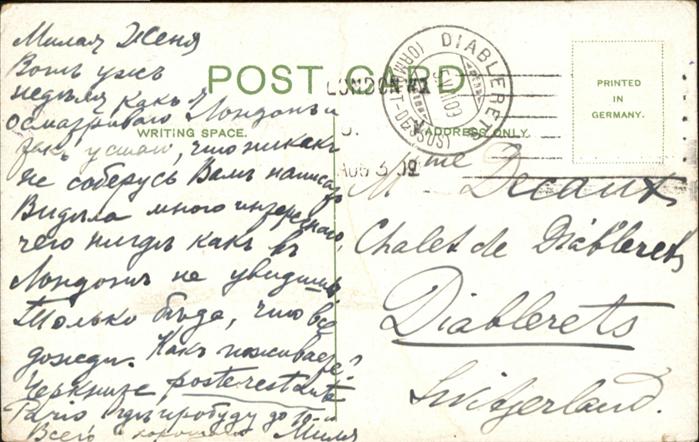 Милая Женя
Вотъ уже
недѣля какъ я
осматриваю Лондонъ и
такъ устаю, что никакъ
не соберусь Вамъ написать
Видѣла много интереснаго,
чего нигдѣ какъ въ
Лондонѣ не увидишь
Только бѣда, что все
дожди. Какъ поживаете?
Черкните poste restante
гдѣ пробуду до 10-
Всего хорошаго Миля
POST CARD
WRITING SPACE.
ADDRESS ONLY.
PRINTED
IN
GERMANY.
LONDON
AUG 3 09
DIABLERETS
(ORMONT-DESSUS)
Mme Decaux
Chalet de Diablerets
Diablerets
Switzerland.